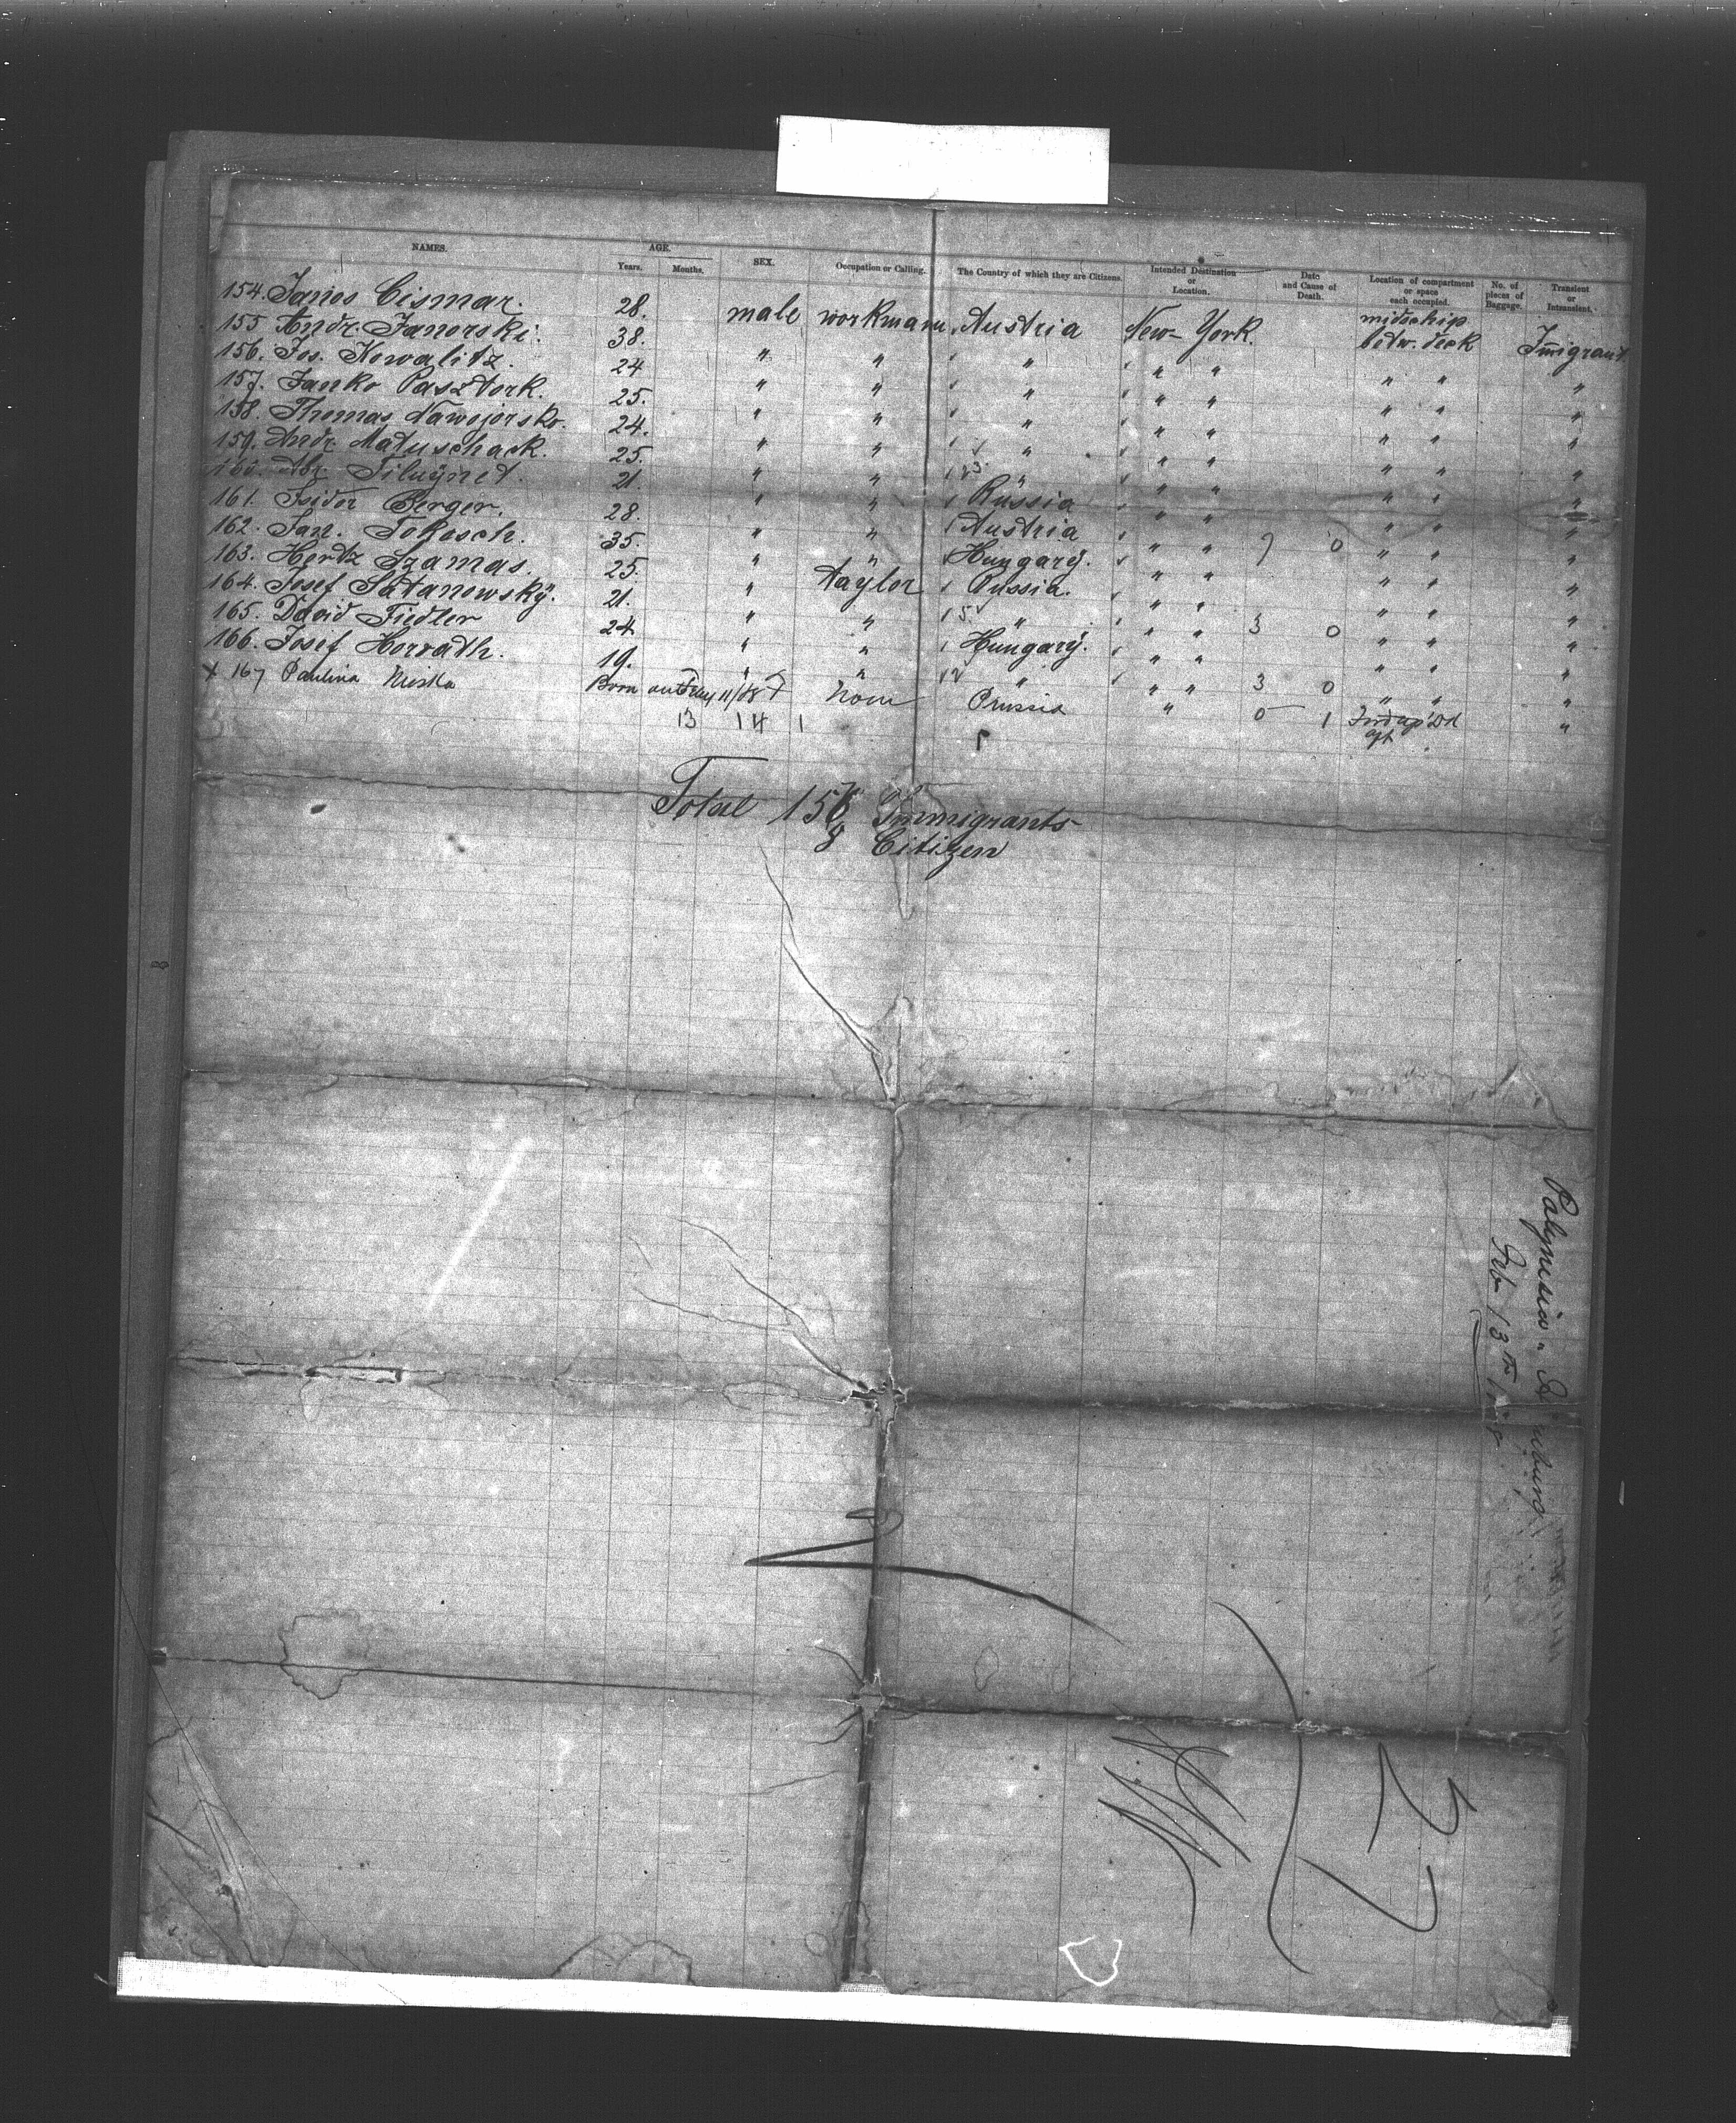 NAMES. AGE. Years. Months. SEX. Occupation or Calling. The Country of which they are Citizens. Intended Destination or Location. Date and Cause of Death. Location of compartment or space each occupied. No. of pieces of Baggage. Transient or Intransient.
154. Janos Cismar. 28. male workmann Austria New-York. midschip betw. deck Imigrant
155 Andr. Janorski. 38. " " " " " " " "
156. Jos. Kowalitz. 24 " " " " " " " "
157. Janko Pasztork. 25. " " " " " " " "
158. Thomas Nawojorsko. 24. " " " " " " " "
159. Andr. Matuschack. 25. " " " " " " " "
160. Abr. 21. " " Russia " " " " "
161. Isidor Berger. 28. " " Austria " " " " "
162. Jan. Tokasch. 35. " " Hungary. " " 7 0 " " "
163. Hertz Szamas. 25. " taylor Russia. " " " " "
164. Josef Satanowsky. 21. " " " " " " " "
165. David Fiedler 24 " " Hungary. " " 3 0 " " "
166. Josef Horvath. 19. " " " " " " " "
x 167 Paulina Born 11/88 None Prussia " 3 0 "
13 14 1 0 1
Total 156 Immigrants
8 Citizen
Polynesia
Feb 13th
27